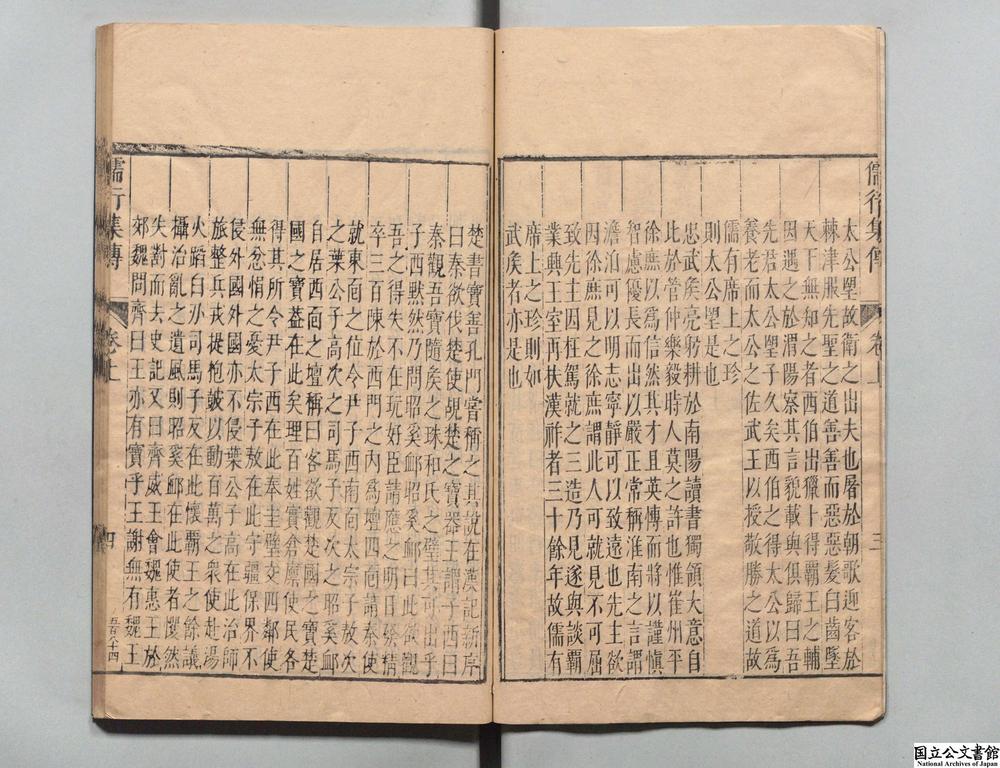 儒行集傳
卷上
三
太公望故衛之出夫也屠於朝歌迎客於
棘津服先聖之道善善而惡惡髮白齒墜
天下無知之者西伯出獵卜得霸王之輔
因遇之於渭陽察其言貌載與俱歸曰吾
先君太公望子久矣西伯之得太公以爲
養老而太公之佐武王以授敬勝之道故
儒有席上之珍
則太公望是也
忠武矦亮躬耕於南陽讀書獨領大意自
比於管仲樂毅時人莫之許也惟崔州平
徐庶以爲信然其才且英傳而將以謹愼
智慮優長而出以嚴正常稱淮南之言謂
澹泊可以明志寧靜可以致遠也先主欲
因徐庶見之徐庶謂此人可就見不可屈
致先主因枉駕就之三造乃見遂與談霸
業興王室再扶漢祥者三十餘年故儒有
席上之珍則如
武矦者亦是也
楚書寶善孔門嘗稱之其說在漢記新序
曰秦欲伐楚使覘楚之寶器王謂子西曰
秦觀吾寶隨矦之珠和氏之璧其可出乎
子西黙然乃問昭奚卹昭奚卹曰此欲觀
吾之得失不在玩好臣請應之明日發精
卒三百陳於西門之內爲壇四靣請奉使
就東靣之位令尹子西南靣太宗子敖次
之葉公子高次之司馬子反次之昭奚卹
自居西靣之壇稱曰客欲觀楚國之寶楚
國之寶葢在此矣理百姓實倉廪使民各
得其所令尹子西在此奉圭璧交四鄰使
無忿悁之憂太宗子敖在此守疆保界不
侵外國外國亦不侵葉公子高在此治師
旅整兵戎提枹皷以動百萬之衆使赴湯
火蹈白刃司馬子反在此懷霸王之餘議
攝治亂之遺風則昭奚卹在此使者懼然
失對而去史記又曰齊威王會魏惠王於
郊魏問齊曰王亦有寶乎王謝無有魏王
儒行集傳
卷上
四
五百八十四
国立公文書館
National Archives of Japan